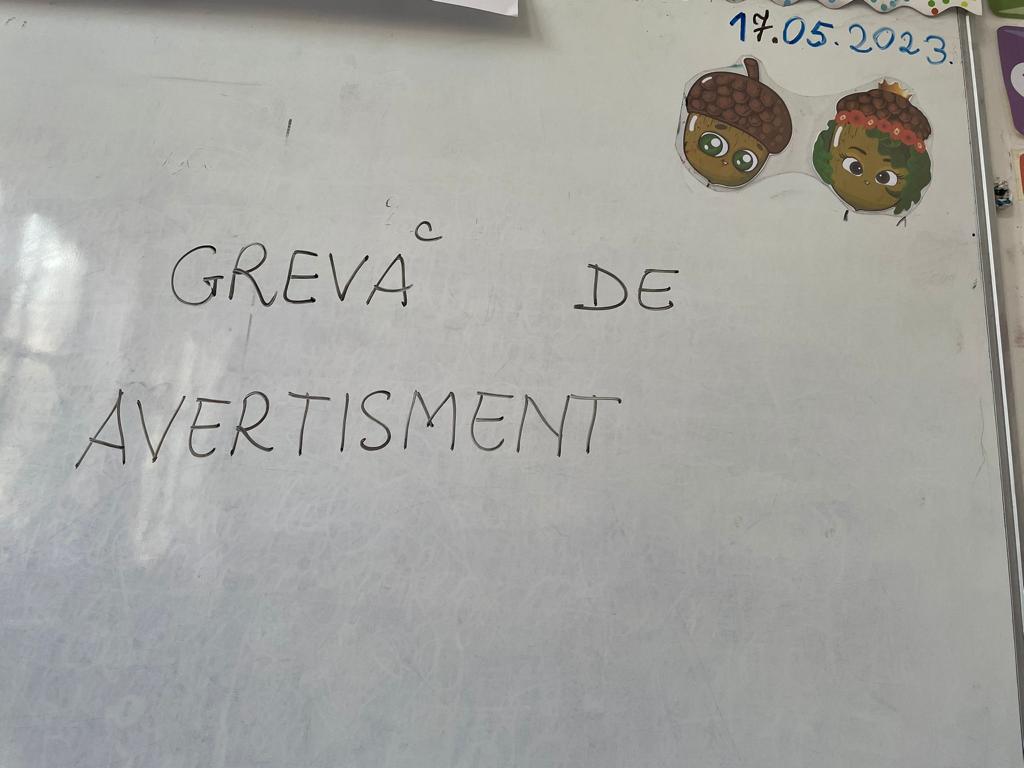 17.05.2023.
GREVĂ DE
AVERTISMENT